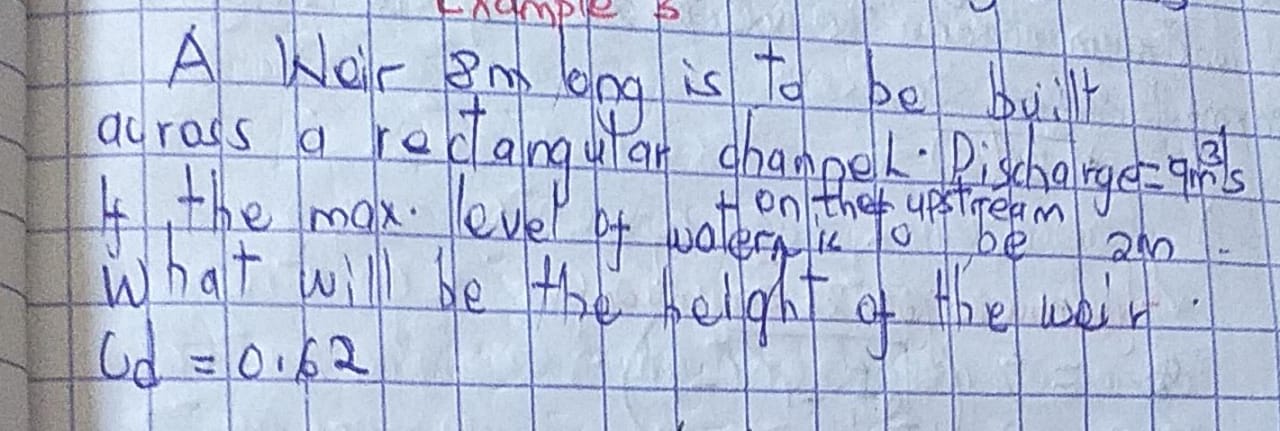 Example 5
A Weir 8m long is to be built
across a rectangular channel. Discharge = 9m³/s
If the max. level of water on the upstream is to be 2m.
What will be the height of the weir.
Cd = 0.62